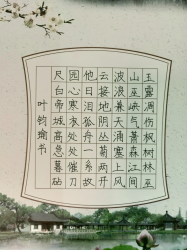 玉露凋伤枫树林巫
山巫峡气萧森江间
波浪兼天涌塞上风
云接地阴丛菊两开
他日泪孤舟一系故
园心寒衣处处催刀
尺白帝城高急暮砧
叶钧瑜书